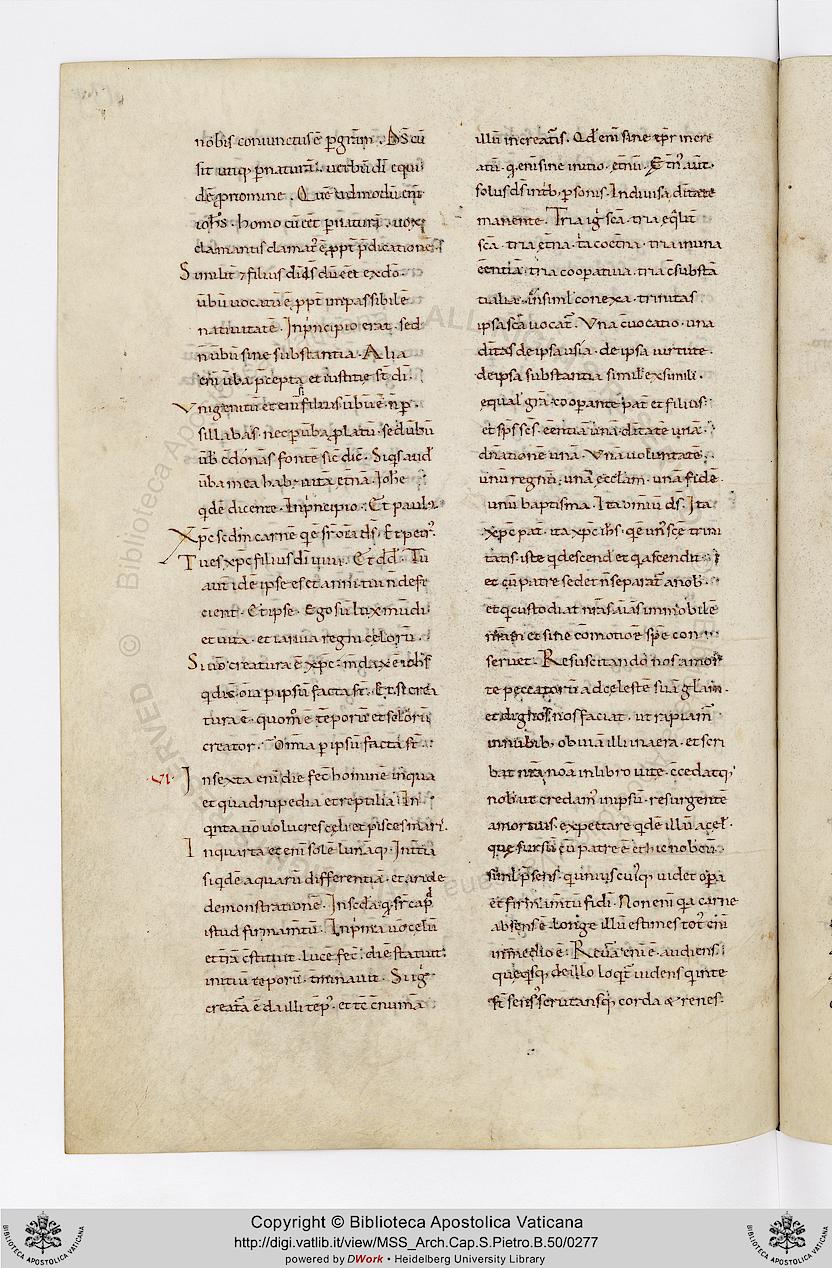 nobis coniunctus ē p̄ gr̄am. Ds̄ cū
sit utiq; p̄ naturā. uerbū dī equi
dē p̄nomine.
iohs̄. homo cū eēt p̄ naturā. uox
clamantis clamat̄ ē ppt̄ p̄dicationē
Similit̄ ⁊ filius dī ds̄ dū eēt ex dō.
ūbū uocatū ē ppt̄ impassibilē
natiuitatē. Inp̄ncipio erat. sed
n̄ ūbū sine substantia. Alia
enī ūba p̄cepta et iustitie st̄ dī.
Vnigenitū et enī filius ūbū ē. n̄ p̄
sillabas. nec p̄ ūba platū. sed ūbū
fonte sic dic̄. Siqs̄ aud̄
ūba mea hab& uitā et̄nā. Iohē
qdē dicente. Inp̄ncipio. Et paulꝰ.
Xp̄c scdm̄ carnē
Tu es xp̄c filius dī uiui. Et dd̄. Tu
aut̄ idē ipse es et anni tui n̄ defi
cient. Et ipse. Ego sū lux mūdi
et uita. et ianua regni celorū.
Si uō creatura ē xp̄c
oīa p̄ ipsū facta st̄. Et si crea
tura ē. quom̄ ē tēporū et sclorū
creator. Omīa p̄ ipsū facta st̄.
.VI. In sexta enī die fec̄ hominē
et quadrupedia et reptilia. In
qinta uō uolucres celi et pisces maris.
In quarta et enī solē lunāq;. In t̄tia
siqdē aquarū differentiā. et aride
demonstrationē. In scda
istud firmam̄tū. In p̄ma uō celū
et t̄rā c̄stituit. lucē fec̄. diē statuit.
initiū tēporū. t̄minauit. Si ig̊
creata ē
illū increatū. Qd̄ enī sine
atū. q. enī sine initio. et̄nū.
solus ds̄ in trib; p̄sonis. Indiuisa ditate
manente. Tria ig̊ scā. tria eqlit̄
scā. tria et̄na. t̄a coet̄na. tria in una
eēntia. tria cooperatiua. tria c̄substā
tialia. insimł conexa. trinitas
ipsa scā uocat̄. Vna c̄uocatio. una
ditas de ipsa usia. de ipsa uirtute.
de ipsa substantia simil̄ ex simili.
equal̄ grā. cooperante pat̄ et filius.
et sp̄s scs̄. eēntia unā. ditate unā.
dn̄atione unā. Vna uoluntatē.
unū regnū. unā ecclam̄. unā fidē.
unū baptisma. Ita omiū ds̄. Ita
xp̄c pat̄. ita xp̄c ih̄s. qē un̄ scē trini
tatis. iste q descend̄ et q ascendit
et cū patre sedet n̄ separat̄ a nob̄.
et q custodiat nr̄as aīas immobilē
et sine comotione spē con
seruet. Resuscitando nos a mor
te peccatorū ad celestē suā gl̄am.
et dignos nos faciat. ut rapiam̄
innubib; obuiā illi in aera. et scri
bat nrā noā in libro uite. c̄cedatq;
nob̄ ut credam̄ in ipsū. resurgentē
amortuis. expectare qdē illū a cel̄.
que sursū cū patre ē et hic nobcū
p̄sens. qui unius cuiq; uidet opa
et firmam̄tū fidi. Non enī qa carne
absens ē. longe illū estimes tot̄ enī
in medio ē. Reuā enī ē. audiens
queqsq; de illo loqt̄ uidens q inte
st̄ sensꝰ scrutansq; corda & renes.
Copyright © Biblioteca Apostolica Vaticana
http://digi.vatlib.it/view/MSS_Arch.Cap.S.Pietro.B.50/0277
powered by DWork • Heidelberg University Library
BIBLIOTECA APOSTOLICA VATICANA
BIBLIOTECA APOSTOLICA VATICANA